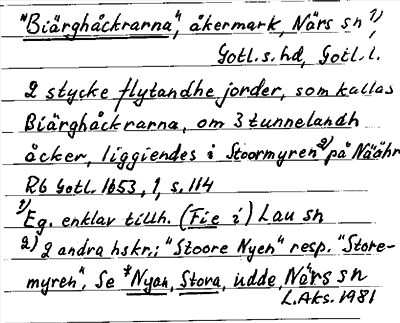 "Biärghåckrarna", åkermark, Närs sn 1),
Gotl.s.hd, Gotl.l.
2 stycke flytandhe jorder, som kallas
Biärghåckrarna, om 3 tunnelandh
åcker, liggiendes i Stoormyren 2) på Näähr
RB Gotl. 1653, 1, s. 114
1) Eg. enklav tillh. (Fie i) Lau sn
2) 2 andra hskr.; "Stoore Nyen" resp. "Store-
myren", Se *Nyan, Stora, udde, Närs sn
L.Aks. 1981